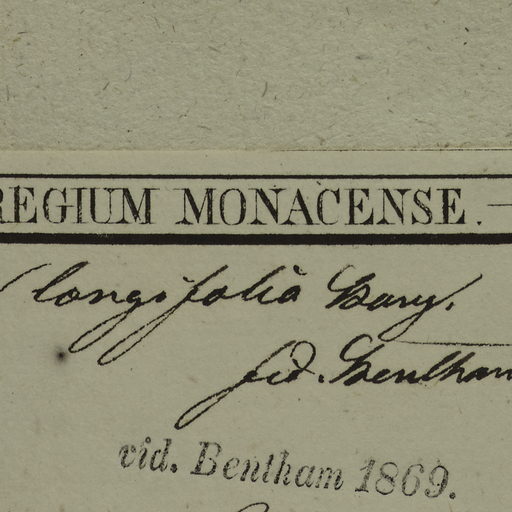 REGIUM MONACENSE. —
longifolia Bory.
fid. Bentham
vid. Bentham 1869.